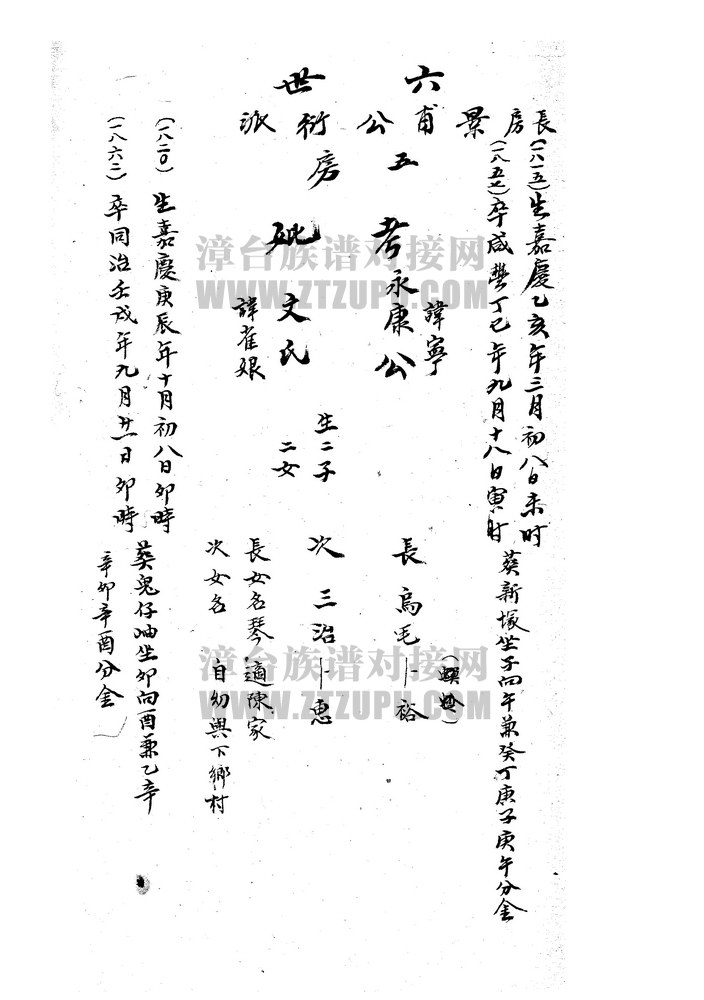 六世
長房景甫公衍派
五房
(一八一五)生嘉慶乙亥年三月初八日未时
(一八五七)卒咸豐丁巳年九月十八日寅时
葵新塚坐子向午兼癸丁庚子庚午分金
諱寧
考永康公
妣文氏
諱雀娘
生二子
二女
長烏毛卜裕
次三治卜惠
長女名琴適陳家
次女名 自幼與下鄉村
(一八二〇)生嘉慶庚辰年十月初八日卯時
(一八六二)卒同治壬戌年九月廿一日卯時
葵兒仔岫坐卯向酉兼乙辛
辛卯辛酉分金
漳台族谱对接网
WWW.ZTZUPU.COM
漳台族谱对接网
WWW.ZTZUPU.COM